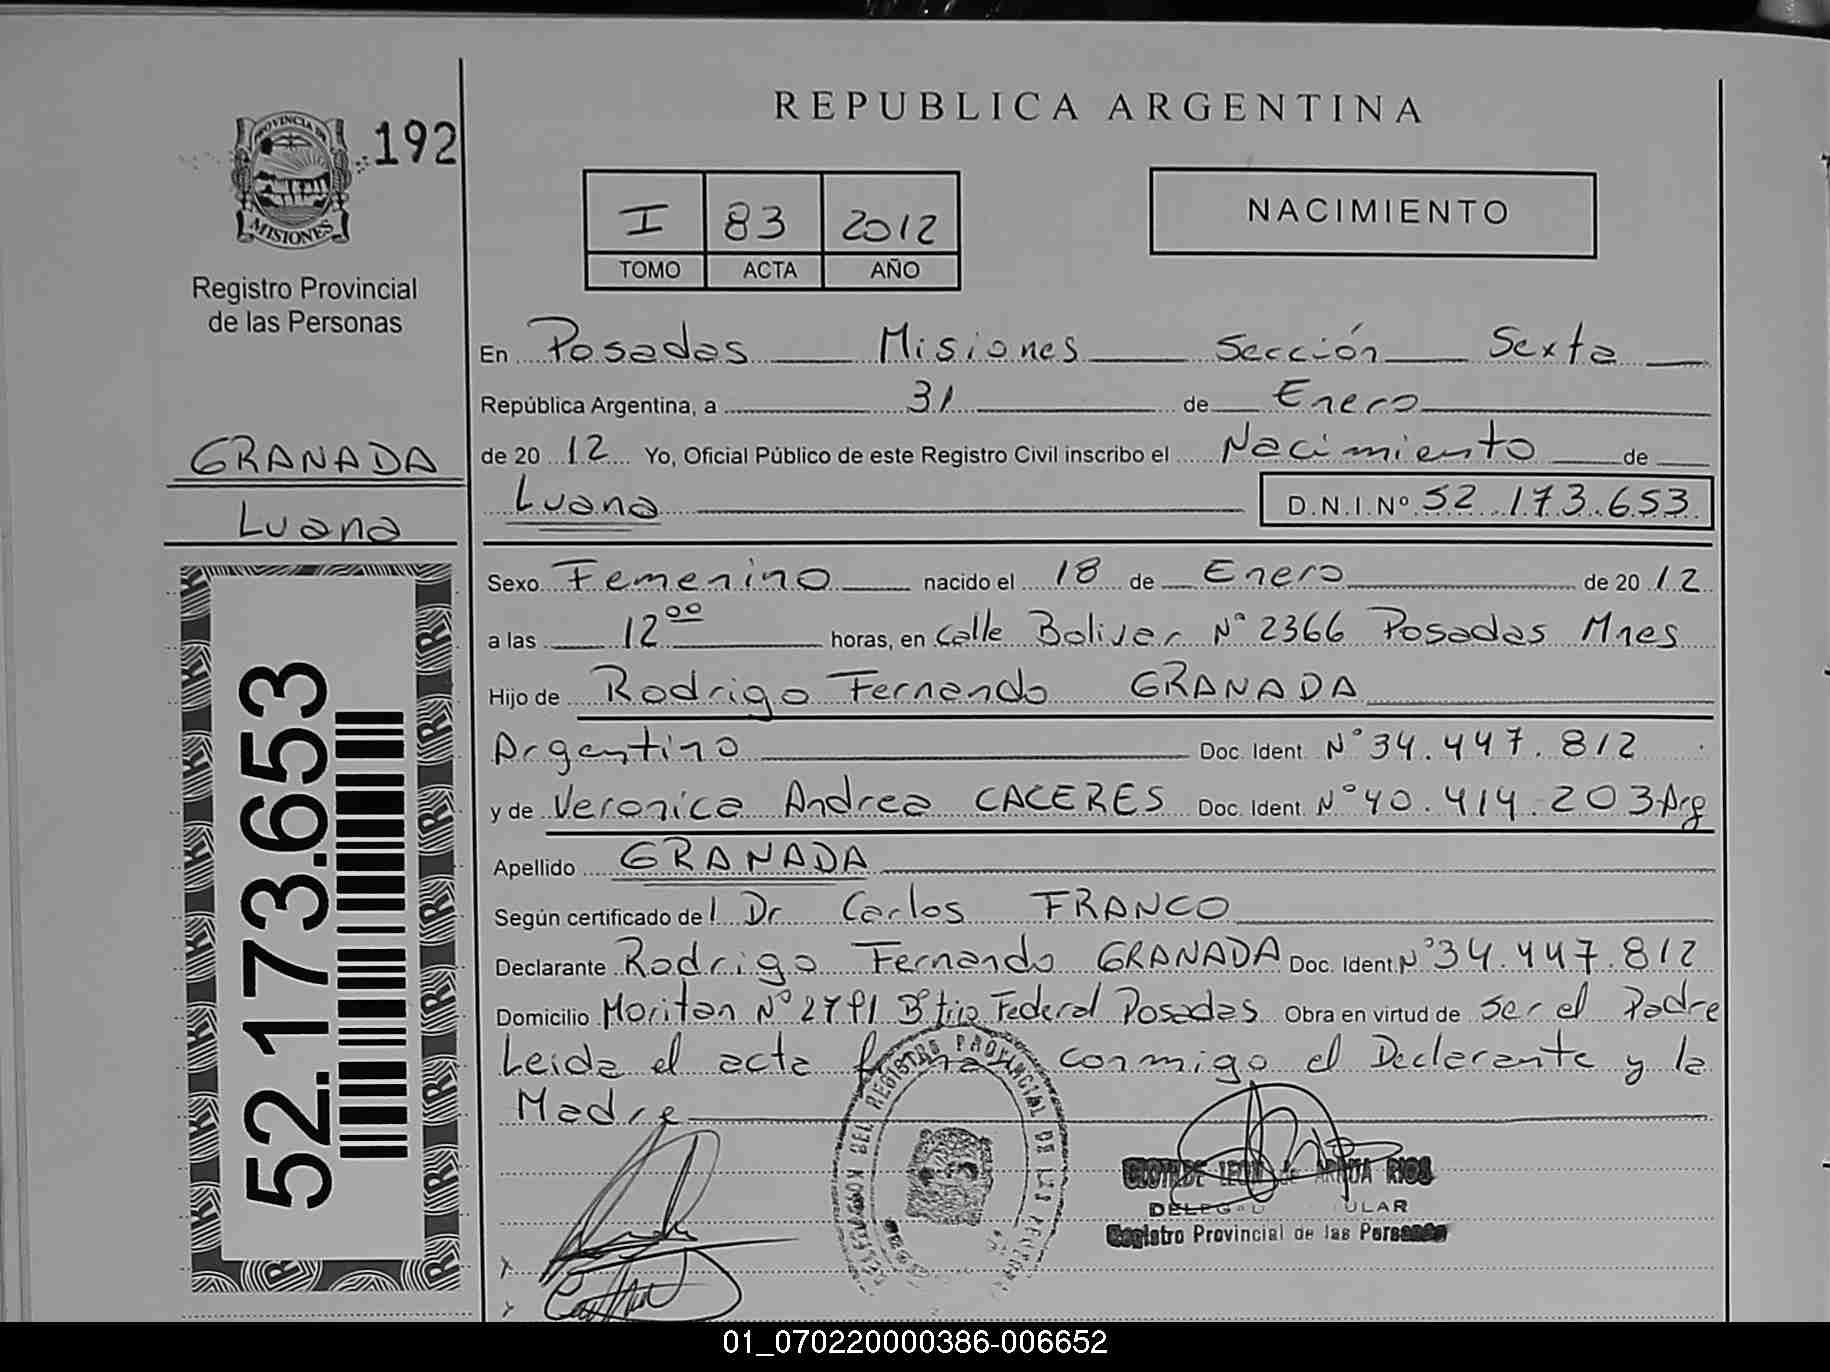 REPUBLICA ARGENTINA
PROVINCIA DE
MISIONES
192
Registro Provincial
de las Personas
I 83 2012
TOMO ACTA AÑO
NACIMIENTO
En Posadas Misiones Sección Sexta
República Argentina, a 31 de Enero
de 2012 Yo, Oficial Público de este Registro Civil inscribo el Nacimiento de
Luana D.N.I.Nº 52.173.653
GRANADA
Luana
52.173.653
Sexo Femenino nacido el 18 de Enero de 2012
a las 12⁰⁰ horas, en calle Bolivar Nº 2366 Posadas Mnes
Hijo de Rodrigo Fernando GRANADA
Argentino Doc. Ident. Nº 34.447.812
y de Veronica Andrea CACERES Doc. Ident. Nº 40.414.203 Arg
Apellido GRANADA
Según certificado del Dr Carlos FRANCO
Declarante Rodrigo Fernando GRANADA Doc. Ident. Nº 34.447.812
Domicilio Nº Federal Posadas Obra en virtud de ser el Padre
Leida el acta conmigo el Declarante y la
Madre
DEL REGISTRO PROVINCIAL DE LAS
RIOS
Registro Provincial de las Personas
01_070220000386-006652